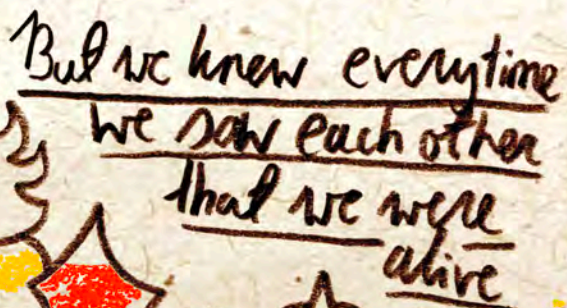 But we knew everytime
we saw each other
that we were
alive